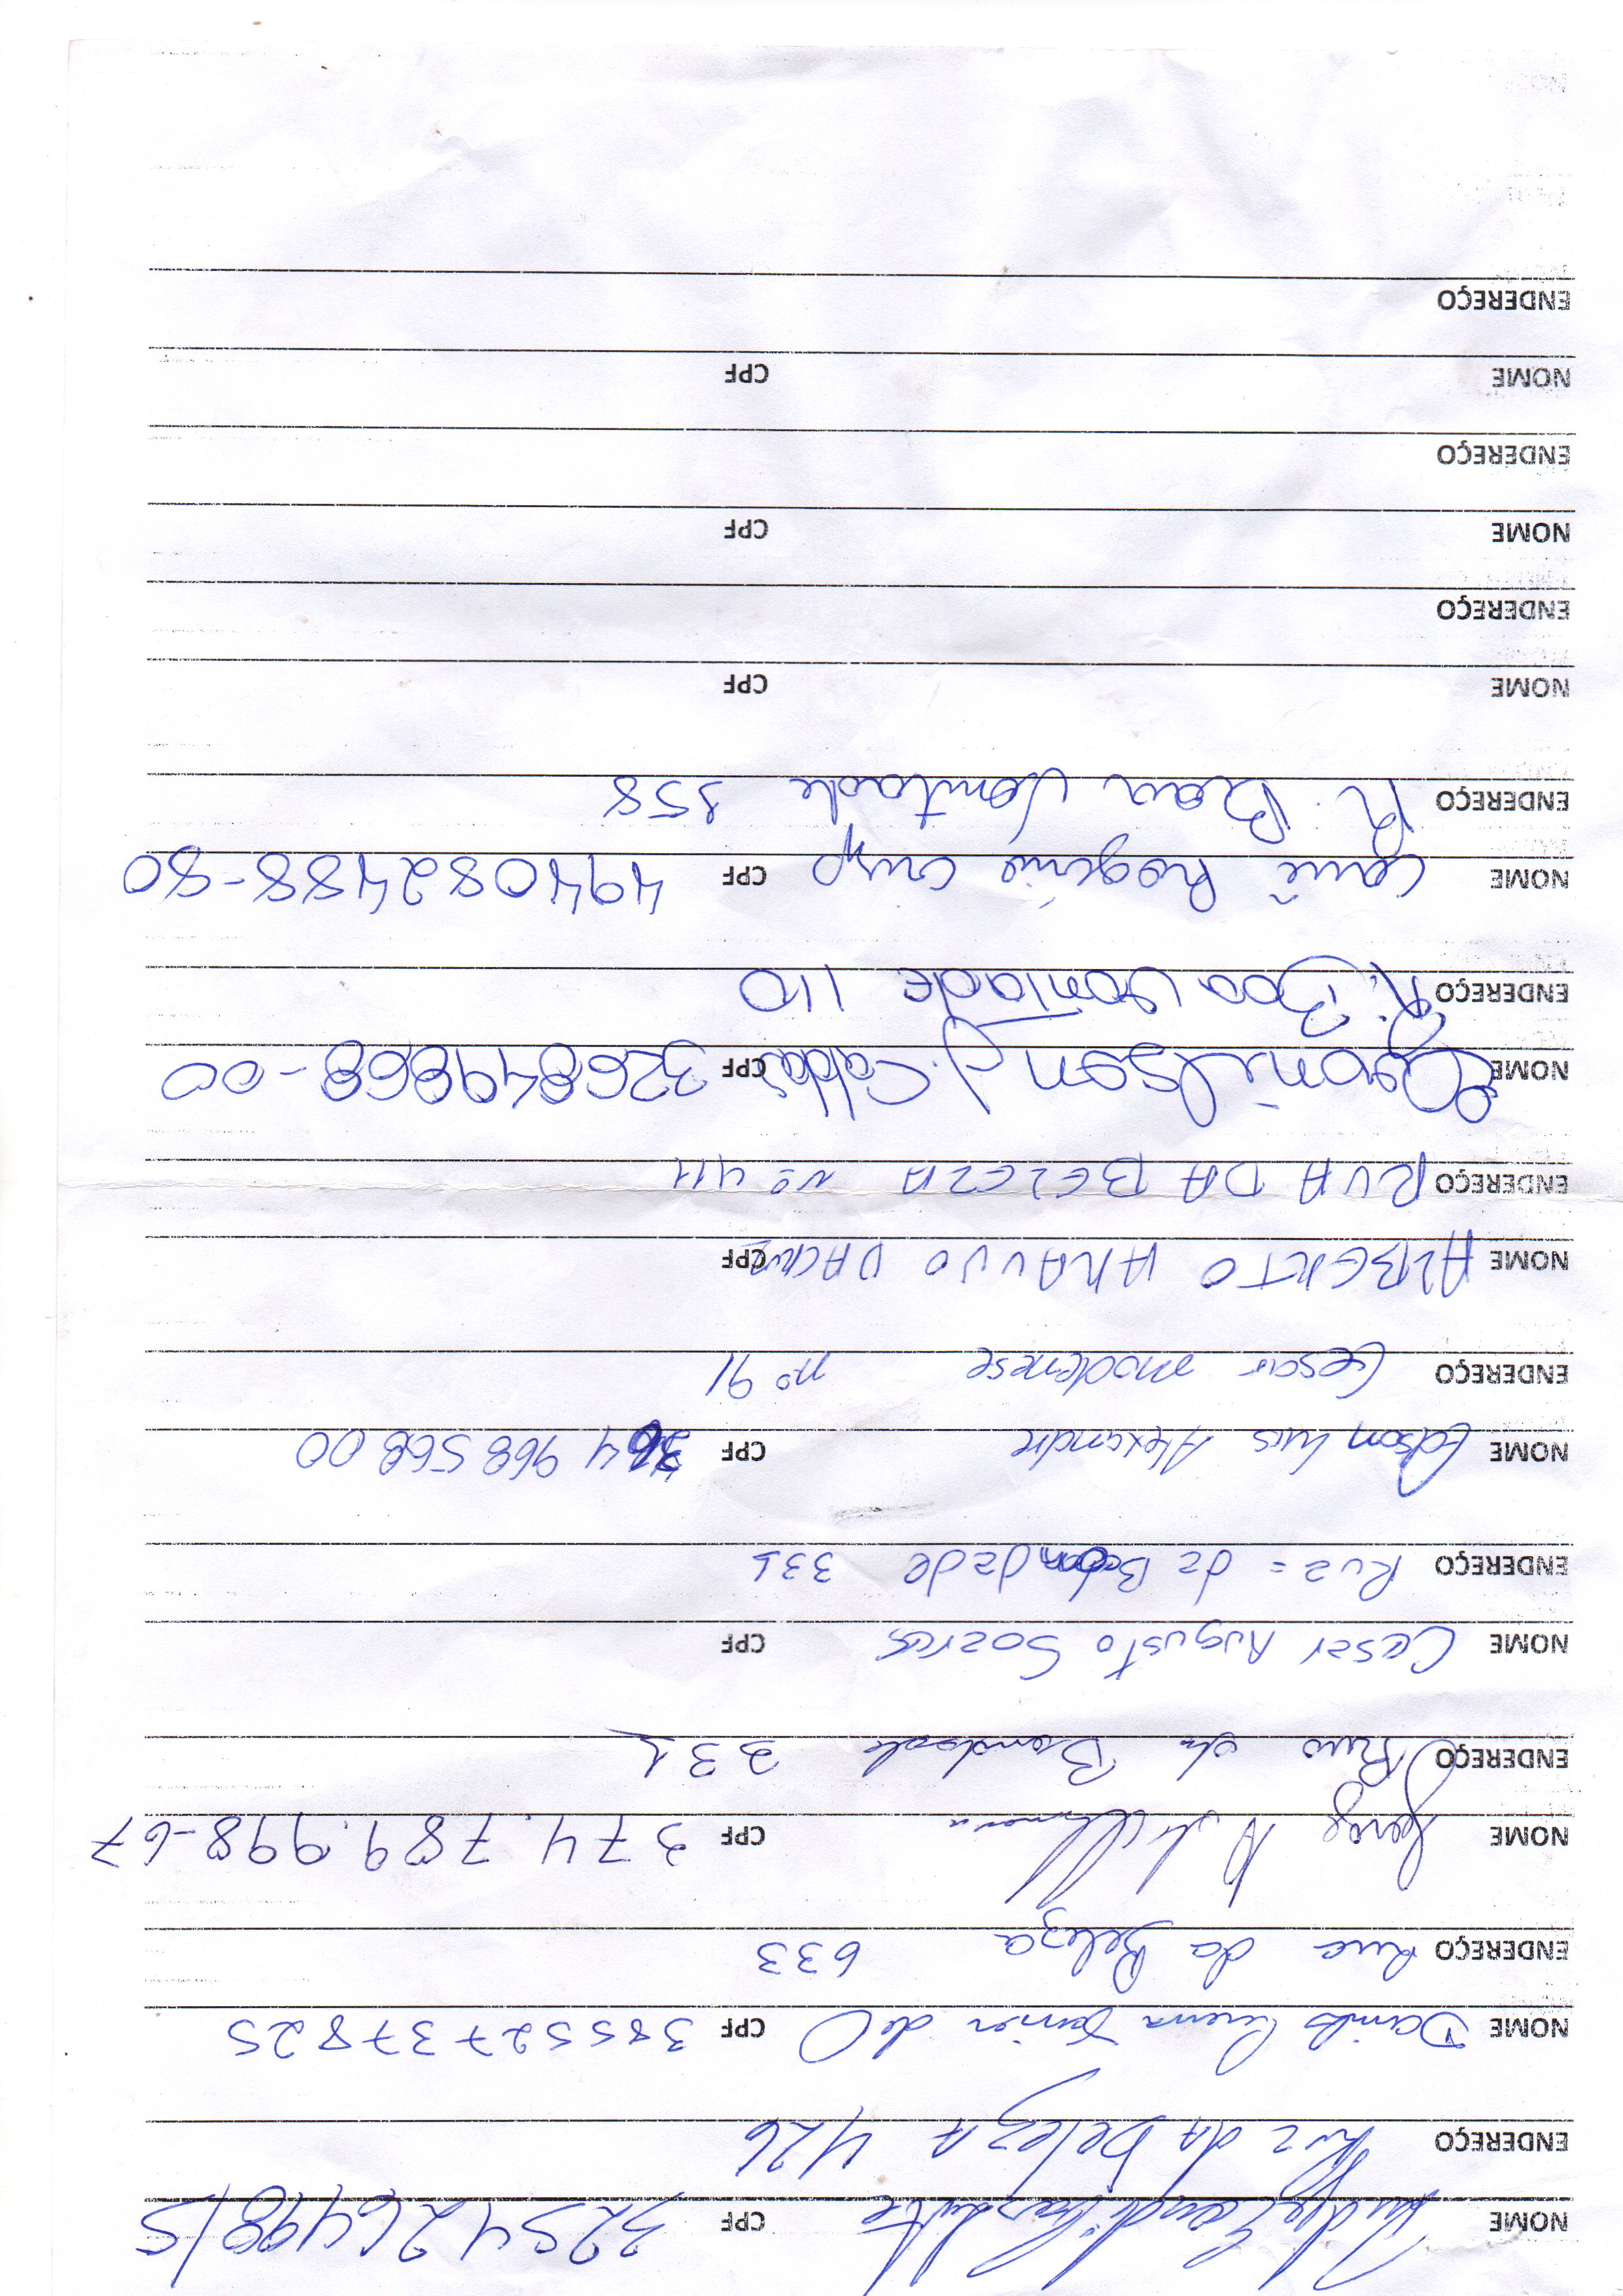 NOME CPF 32542649815
ENDEREÇO Rua da beleza 426
NOME Danilo Xavier de O CPF 38552737825
ENDEREÇO Rua da Beleza 633
NOME Jorge A. CPF 374.789.998-67
ENDEREÇO Rua da Bondade 331
NOME Cesar Augusto Soares CPF
ENDEREÇO Rua = da Bondade 331
NOME Edson Luis Alexandre CPF 4968568 00
ENDEREÇO Cesar modenese nº 91
NOME ALBERTO ARAUJO DACRUZ CPF
ENDEREÇO RUA DA BELEZA Nº 411
NOME J. Caldas CPF 326849868-00
ENDEREÇO R. Boa Vontade 110
NOME Cauê Rogério Crisp CPF 494082488-80
ENDEREÇO R. Boa Vontade 358
NOME CPF
ENDEREÇO
NOME CPF
ENDEREÇO
NOME CPF
ENDEREÇO